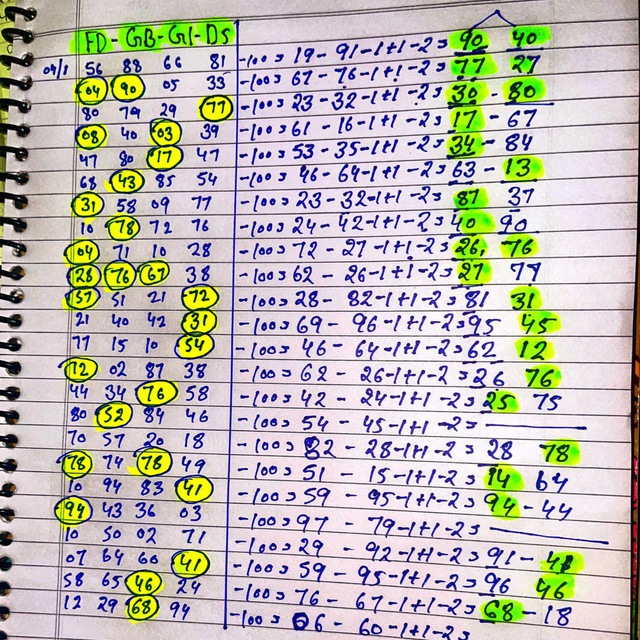 FD - GB - G1 - DS
04/1 56 88 66 81 -100 = 19 - 91 -1+1 -2 = 90 40
04 90 05 33 -100 = 67 - 76 -1+1 -2 = 77 27
80 79 29 77 -100 = 23 - 32 -1+1 -2 = 30 - 80
08 40 03 39 -100 = 61 - 16 -1+1 -2 = 17 - 67
47 80 17 47 -100 = 53 - 35 -1+1 -2 = 34 - 84
68 43 85 54 -100 = 46 - 64 -1+1 -2 = 63 - 13
31 58 09 77 -100 = 23 - 32 -1+1 -2 = 87 37
10 78 72 76 -100 = 24 - 42 -1+1 -2 = 40 90
04 71 10 28 -100 = 72 - 27 -1+1 -2 = 26, 76
28 76 67 38 -100 = 62 - 26 -1+1 -2 = 27 77
57 51 21 72 -100 = 28 - 82 -1+1 -2 = 81 31
21 40 42 31 -100 = 69 - 96 -1+1 -2 = 95 45
77 15 10 54 -100 = 46 - 64 -1+1 -2 = 62 12
72 02 87 38 -100 = 62 - 26 -1+1 -2 = 26 76
44 34 76 58 -100 = 42 - 24 -1+1 -2 = 25 75
80 52 84 46 -100 = 54 - 45 -1+1 -2 =
70 57 20 18 -100 = 82 - 28 -1+1 -2 = 28 78
78 74 78 49 -100 = 51 - 15 -1+1 -2 = 14 64
10 94 83 41 -100 = 59 - 95 -1+1 -2 = 94 - 44
94 43 36 03 -100 = 97 - 79 -1+1 -2 =
10 50 02 71 -100 = 29 - 92 -1+1 -2 = 91 - 41
07 64 60 41 -100 = 59 - 95 -1+1 -2 = 96 46
58 65 46 24 -100 = 76 - 67 -1+1 -2 = 68 - 18
12 29 68 94 -100 = 06 - 60 -1+1 -2 =